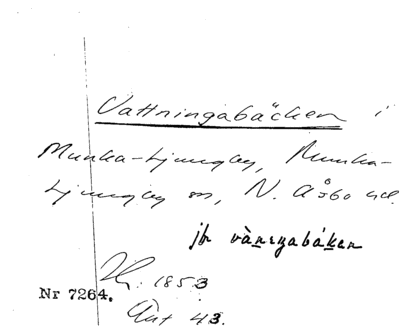 Vattningabäcken i
Munka-Ljungby, Munka-
Ljungby sn, N. Åsbo hd.
jfr
1853
Nr 7264.
43.